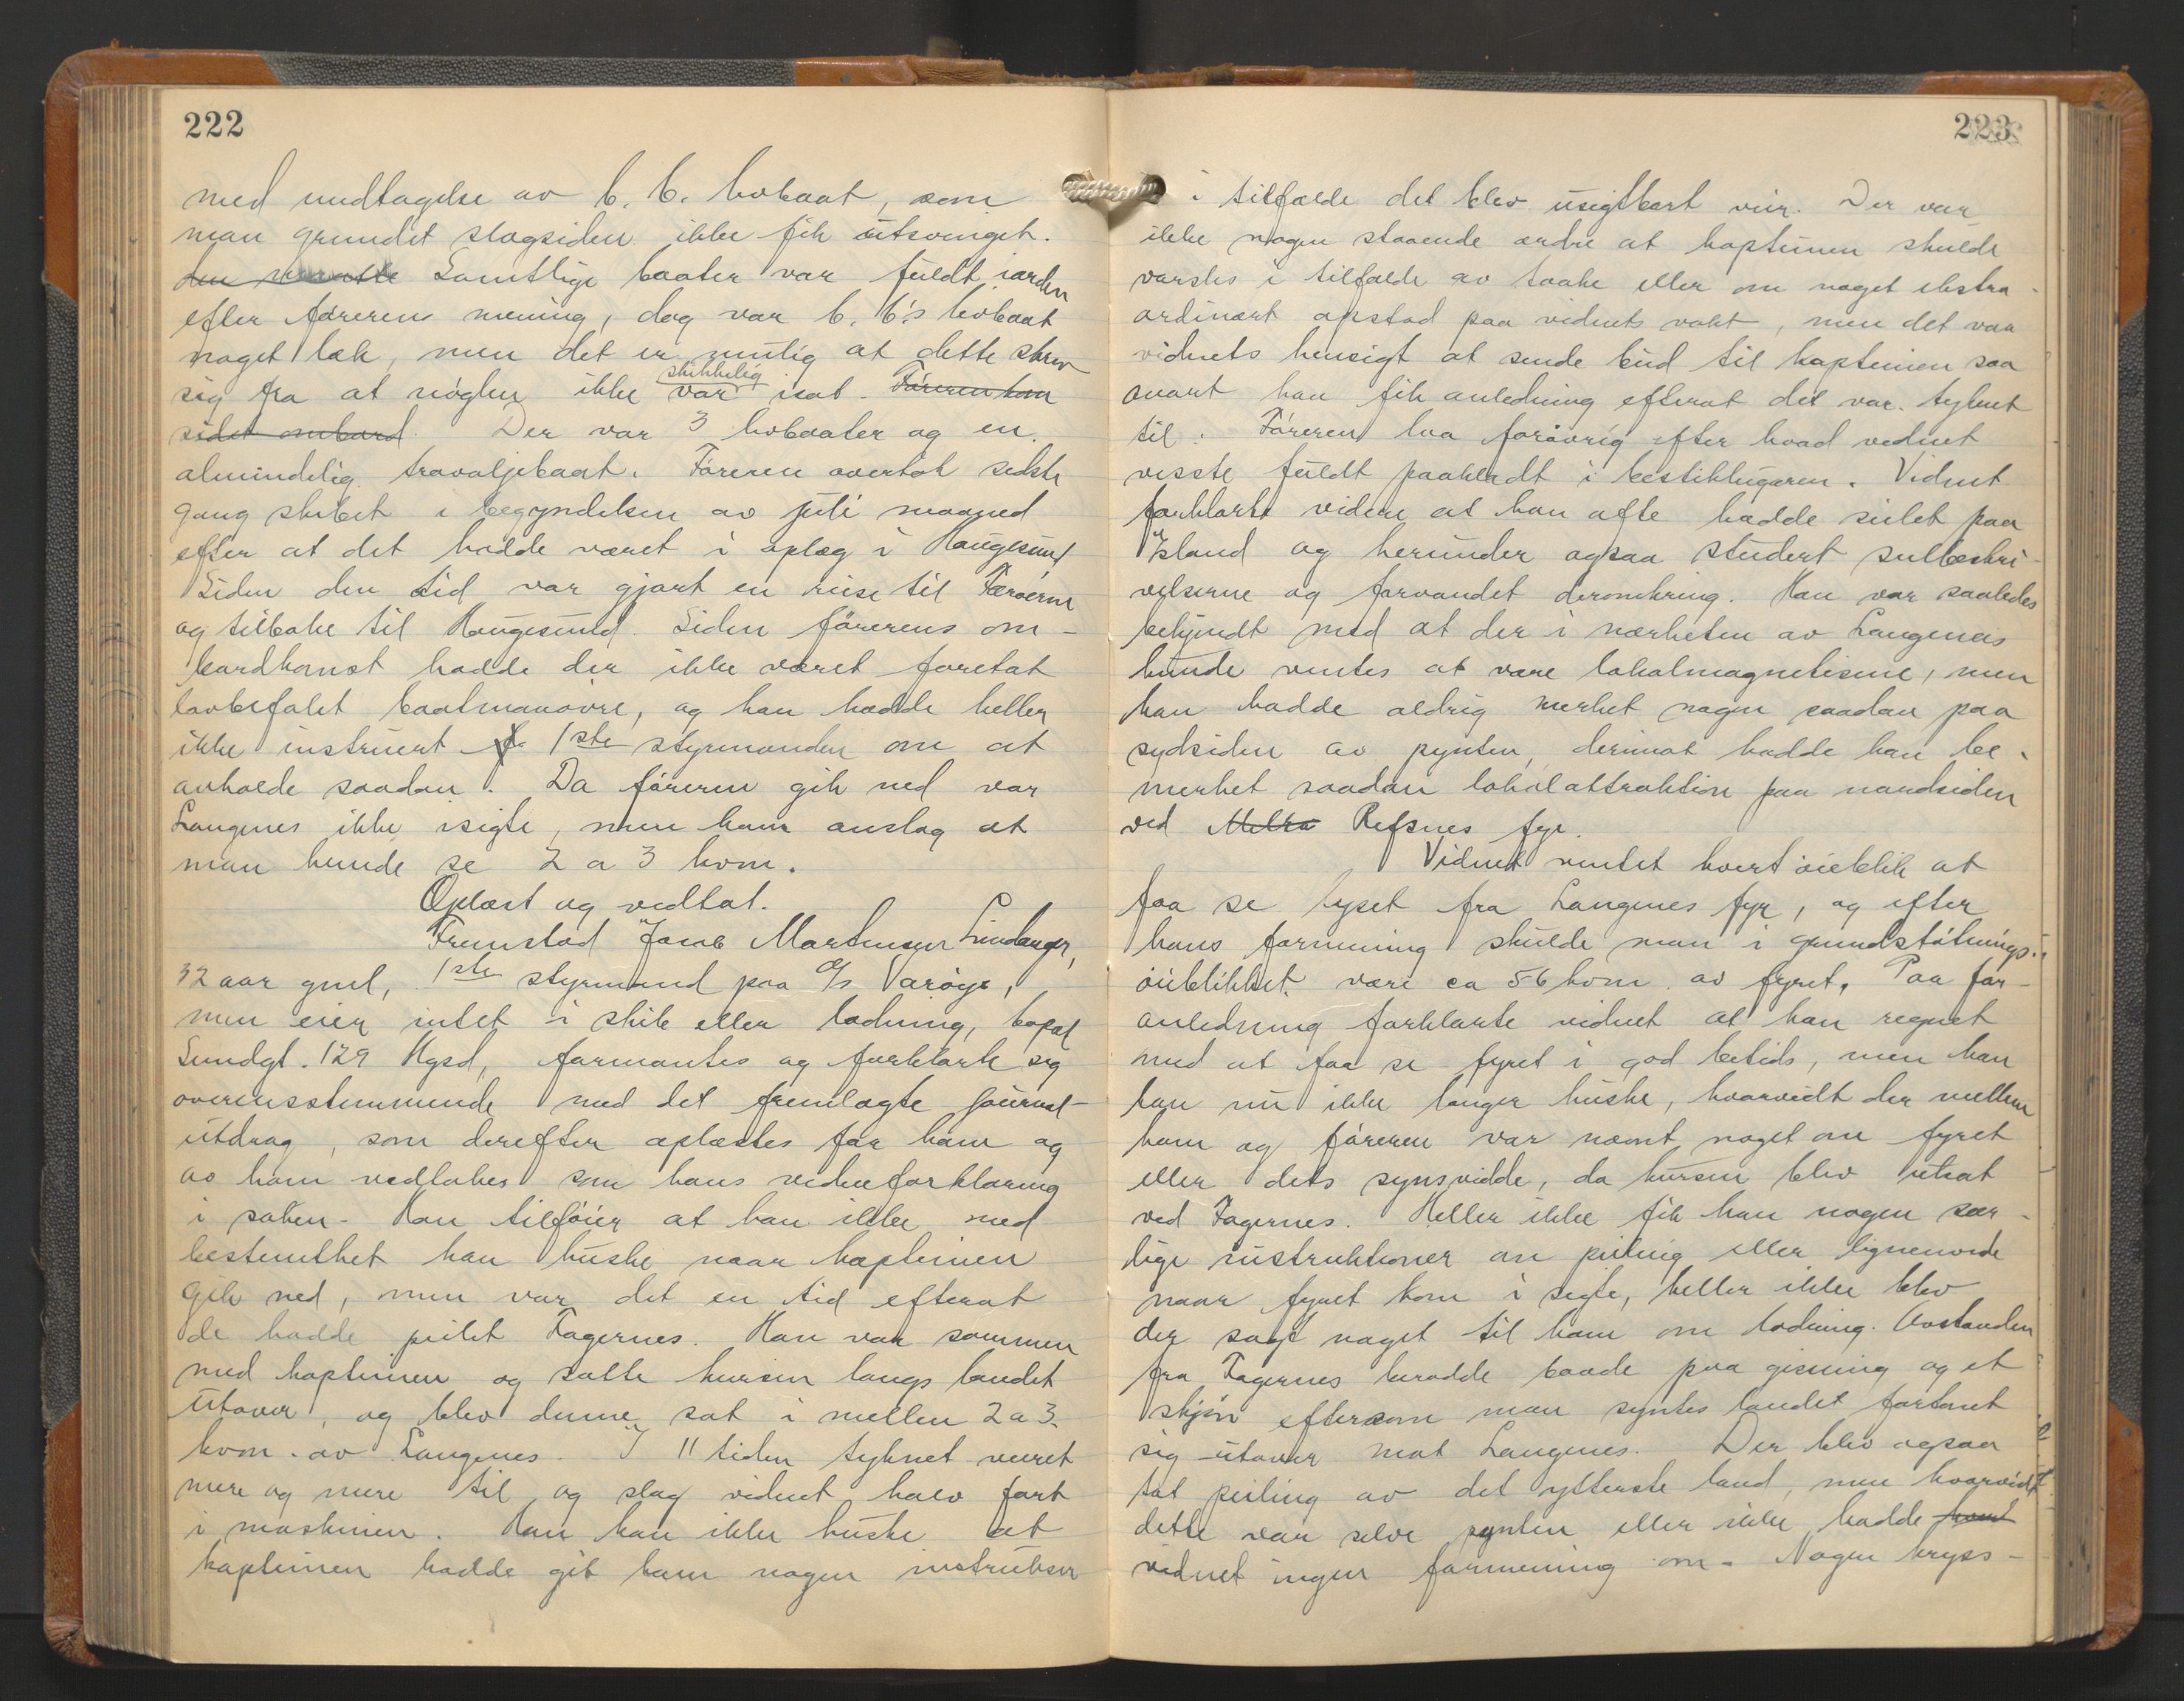 222
med undtagelse av b. b. livbaat, som
man grundet slagsiden ikke fik utsvinget.
Samtlige baater var fuldt iorden
efter førerens mening, dog var b. b.'s livbaat
noget læk, men det er mulig at dette skrev
sig fra at nøglen ikke var skikkelig isat. Føreren kom
sidst ombord. Der var 3 livbaater og en
almindelig travaljebaat. Føreren overtok sidste
gang skibet i begyndelsen av juli maaned
efter at det hadde været i oplag i Haugesund
Siden den tid var gjort en reise til Færøerne
og tilbake til Haugesund. Siden førerens om-
bordkomst hadde der ikke været foretat
lovbefalet baatmanøvre, og han hadde heller
ikke instruert 1ste styrmanden om at
avholde saadan. Da føreren gik ned var
Langenes ikke isigte, men han anslog at
man kunde se 2 a 3 kvm.
Oplæst og vedtat.
Fremstod Jacob Martinsen Lindanger,
32 aar gml, 1ste styrmand paa D/S Varøye,
men eier intet i skib eller ladning, bopæl
Sundgt. 129 Hgsd, formantes og forklarte sig
overensstemmende med det fremlagte journal-
utdrag, som derefter oplæstes for ham og
av ham vedtokes som hans vidneforklaring
i saken. Han tilføier at han ikke med
bestemthet kan huske naar kapteinen
gik ned, men var det en tid efterat
de hadde peilet Fagernes. Han var sammen
med kapteinen og satte kursen langs landet
utover, og blev denne sat i mellem 2 a 3
kvm. av Langenes. I 11 tiden tyknet veiret
mere og mere til og slog vidnet halv fart
i maskinen. Han kan ikke huske at
kapteinen hadde git ham nogen instrukser
223
i tilfælde det blev usigtbart veir. Der var
ikke nogen staaende ordre at kapteinen skulde
varsles i tilfælde av taake eller om noget ekstra-
ordinært opstod paa vidnets vakt, men det var
vidnets hensigt at sende bud til kapteinen saa
snart han fik anledning efterat det var tyknet
til. Føreren laa forøvrig efter hvad vidnet
visste fuldt paaklædt i bestiklugaren. Vidnet
forklarte videre at han ofte hadde seilet paa
Island og herunder ogsaa studert seilbeskri-
velserne og farvandet deromkring. Han var saaledes
bekjendt med at der i nærheten av Langenes
kunde ventes at være lokalmagnetisme, men
han hadde aldrig merket nogen saadan paa
sydsiden av pynten, derimot hadde han be-
merket saadan lokalattraktion paa nordsiden
ved Melra Refsnes fyr.
Vidnet ventet hvert øieblik at
faa se lyset fra Langenes fyr, og efter
hans formening skulde man i grundstøtnings-
øieblikket være ca 5-6 kvm. av fyret. Paa for-
anledning forklarte vidnet at han regnet
med at faa se fyret i god betids, men han
kan nu ikke længer huske, hvorvidt der mellem
ham og føreren var nævnt noget om fyret
eller dets synsvidde, da kursen blev utsat
ved Fagernes. Heller ikke fik han nogen sær-
lige instruktioner om peiling eller lignende
naar fyret kom i sigte, heller ikke blev
der sagt noget til ham om lodning. Avstanden
fra Fagernes berodde baade paa gisning og et
skjøn eftersom man syntes landet fortonet
sig utover mot Langenes. Der blev ogsaa
tat peiling av det ytterste land, men hvorvidt
dette var selve pynten eller ikke hadde
vidnet ingen formening om. Nogen kryss-